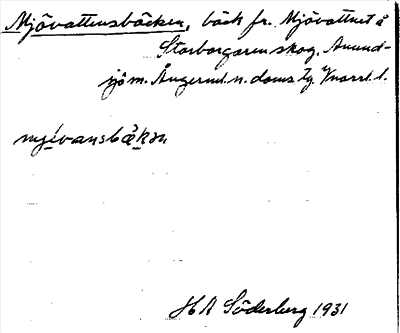 Mjövattensbäcken, bäck fr. Mjövattnet å
Storborgaren skog. Anund-
sjö m. Ångerml. n. doms tg. Vnorrl. l.
mjèvansbǽkɔn
H A Söderberg 1931